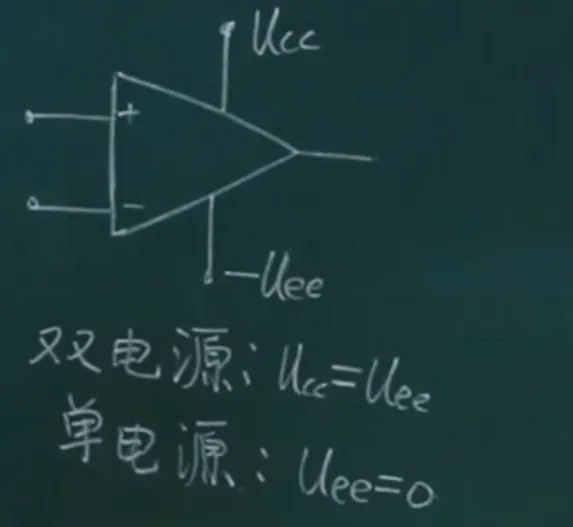 Ucc
+
−
−Uee
双电源：Ucc=Uee
单电源：Uee=0